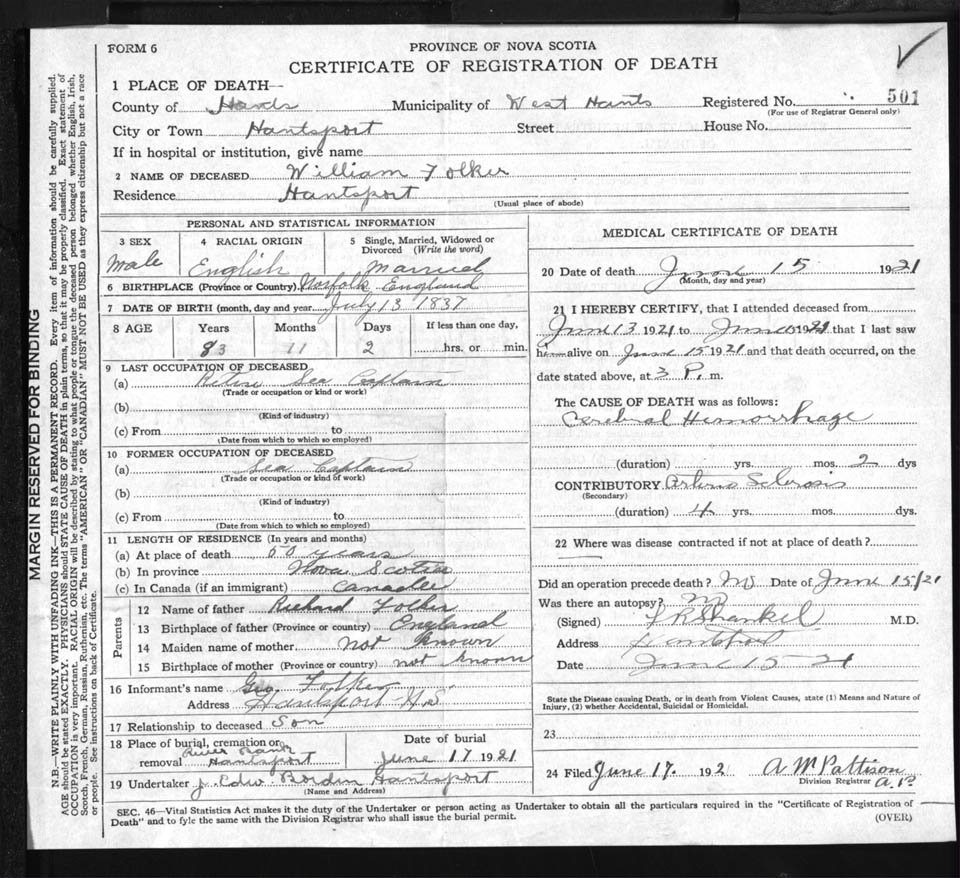 FORM 6
PROVINCE OF NOVA SCOTIA
CERTIFICATE OF REGISTRATION OF DEATH
1 PLACE OF DEATH—
County of Hants Municipality of West Hants Registered No. 501
(For use of Registrar General only)
City or Town Hantsport Street House No.
If in hospital or institution, give name
2 NAME OF DECEASED William Folker
Residence Hantsport
(Usual place of abode)
PERSONAL AND STATISTICAL INFORMATION
3 SEX 4 RACIAL ORIGIN 5 Single, Married, Widowed or
Divorced (Write the word)
Male English Married
6 BIRTHPLACE (Province or Country) Norfolk England
7 DATE OF BIRTH (month, day and year July 13 1837
8 AGE Years Months Days If less than one day,
83 11 2 hrs. or min.
9 LAST OCCUPATION OF DECEASED
(a) Retire Sea Captain
(Trade or occupation or kind or work)
(b)
(Kind of industry)
(c) From to
(Date from which to which so employed)
10 FORMER OCCUPATION OF DECEASED
(a) Sea Captain
(Trade or occupation or kind of work)
(b)
(Kind of industry)
(c) From to
(Date from which to which so employed)
11 LENGTH OF RESIDENCE (In years and months)
(a) At place of death 60 years
(b) In province Nova Scotia
(c) In Canada (if an immigrant)
Parents
12 Name of father Richard Folker
13 Birthplace of father (Province or country) England
14 Maiden name of mother not known
15 Birthplace of mother (Province or country) not known
16 Informant's name Geo. Folker
Address Hantsport N.S
17 Relationship to deceased Son
18 Place of burial, cremation or removal River Bank Hantsport
Date of burial June 17 1921
19 Undertaker J. Edw Borden Hantsport
(Name and Address)
MEDICAL CERTIFICATE OF DEATH
20 Date of death June 15 1921
(Month, day and year)
21 I HEREBY CERTIFY, that I attended deceased from
June 13 1921 to June 1921 that I last saw
him alive on June 15 1921 and that death occurred, on the
date stated above, at 3 P. m.
The CAUSE OF DEATH was as follows:
Cerebral Hemorrhage
(duration) yrs. mos. 2 dys
CONTRIBUTORY Arterio Sclerosis
(Secondary)
(duration) 4 yrs. mos. dys.
22 Where was disease contracted if not at place of death?
Did an operation precede death? No Date of June 15/21
Was there an autopsy? no
(Signed) Shankel M.D.
Address Hantsport
Date June 15 21
State the Disease causing Death, or in death from Violent Causes, state (1) Means and Nature of
Injury, (2) whether Accidental, Suicidal or Homicidal.
23
24 Filed June 17. 192 A M Pattison
Division Registrar
SEC. 46—Vital Statistics Act makes it the duty of the Undertaker or person acting as Undertaker to obtain all the particulars required in the "Certificate of Registration of
Death" and to fyle the same with the Division Registrar who shall issue the burial permit.
(OVER)
MARGIN RESERVED FOR BINDING
N.B.—WRITE PLAINLY WITH UNFADING INK—THIS IS A PERMANENT RECORD. Every item of information should be carefully supplied.
AGE should be stated EXACTLY. PHYSICIANS should STATE CAUSE OF DEATH in plain terms, so that it may be properly classified. Exact statement of
OCCUPATION is very important. RACIAL ORIGIN will be described by stating to what people or tongue the deceased person belonged whether English, Irish,
Scotch, French, German, Russian, Ruthenian, etc. The terms "AMERICAN" OR "CANADIAN" MUST NOT BE USED as they express citizenship but not a race
or people. See instructions on back of Certificate.